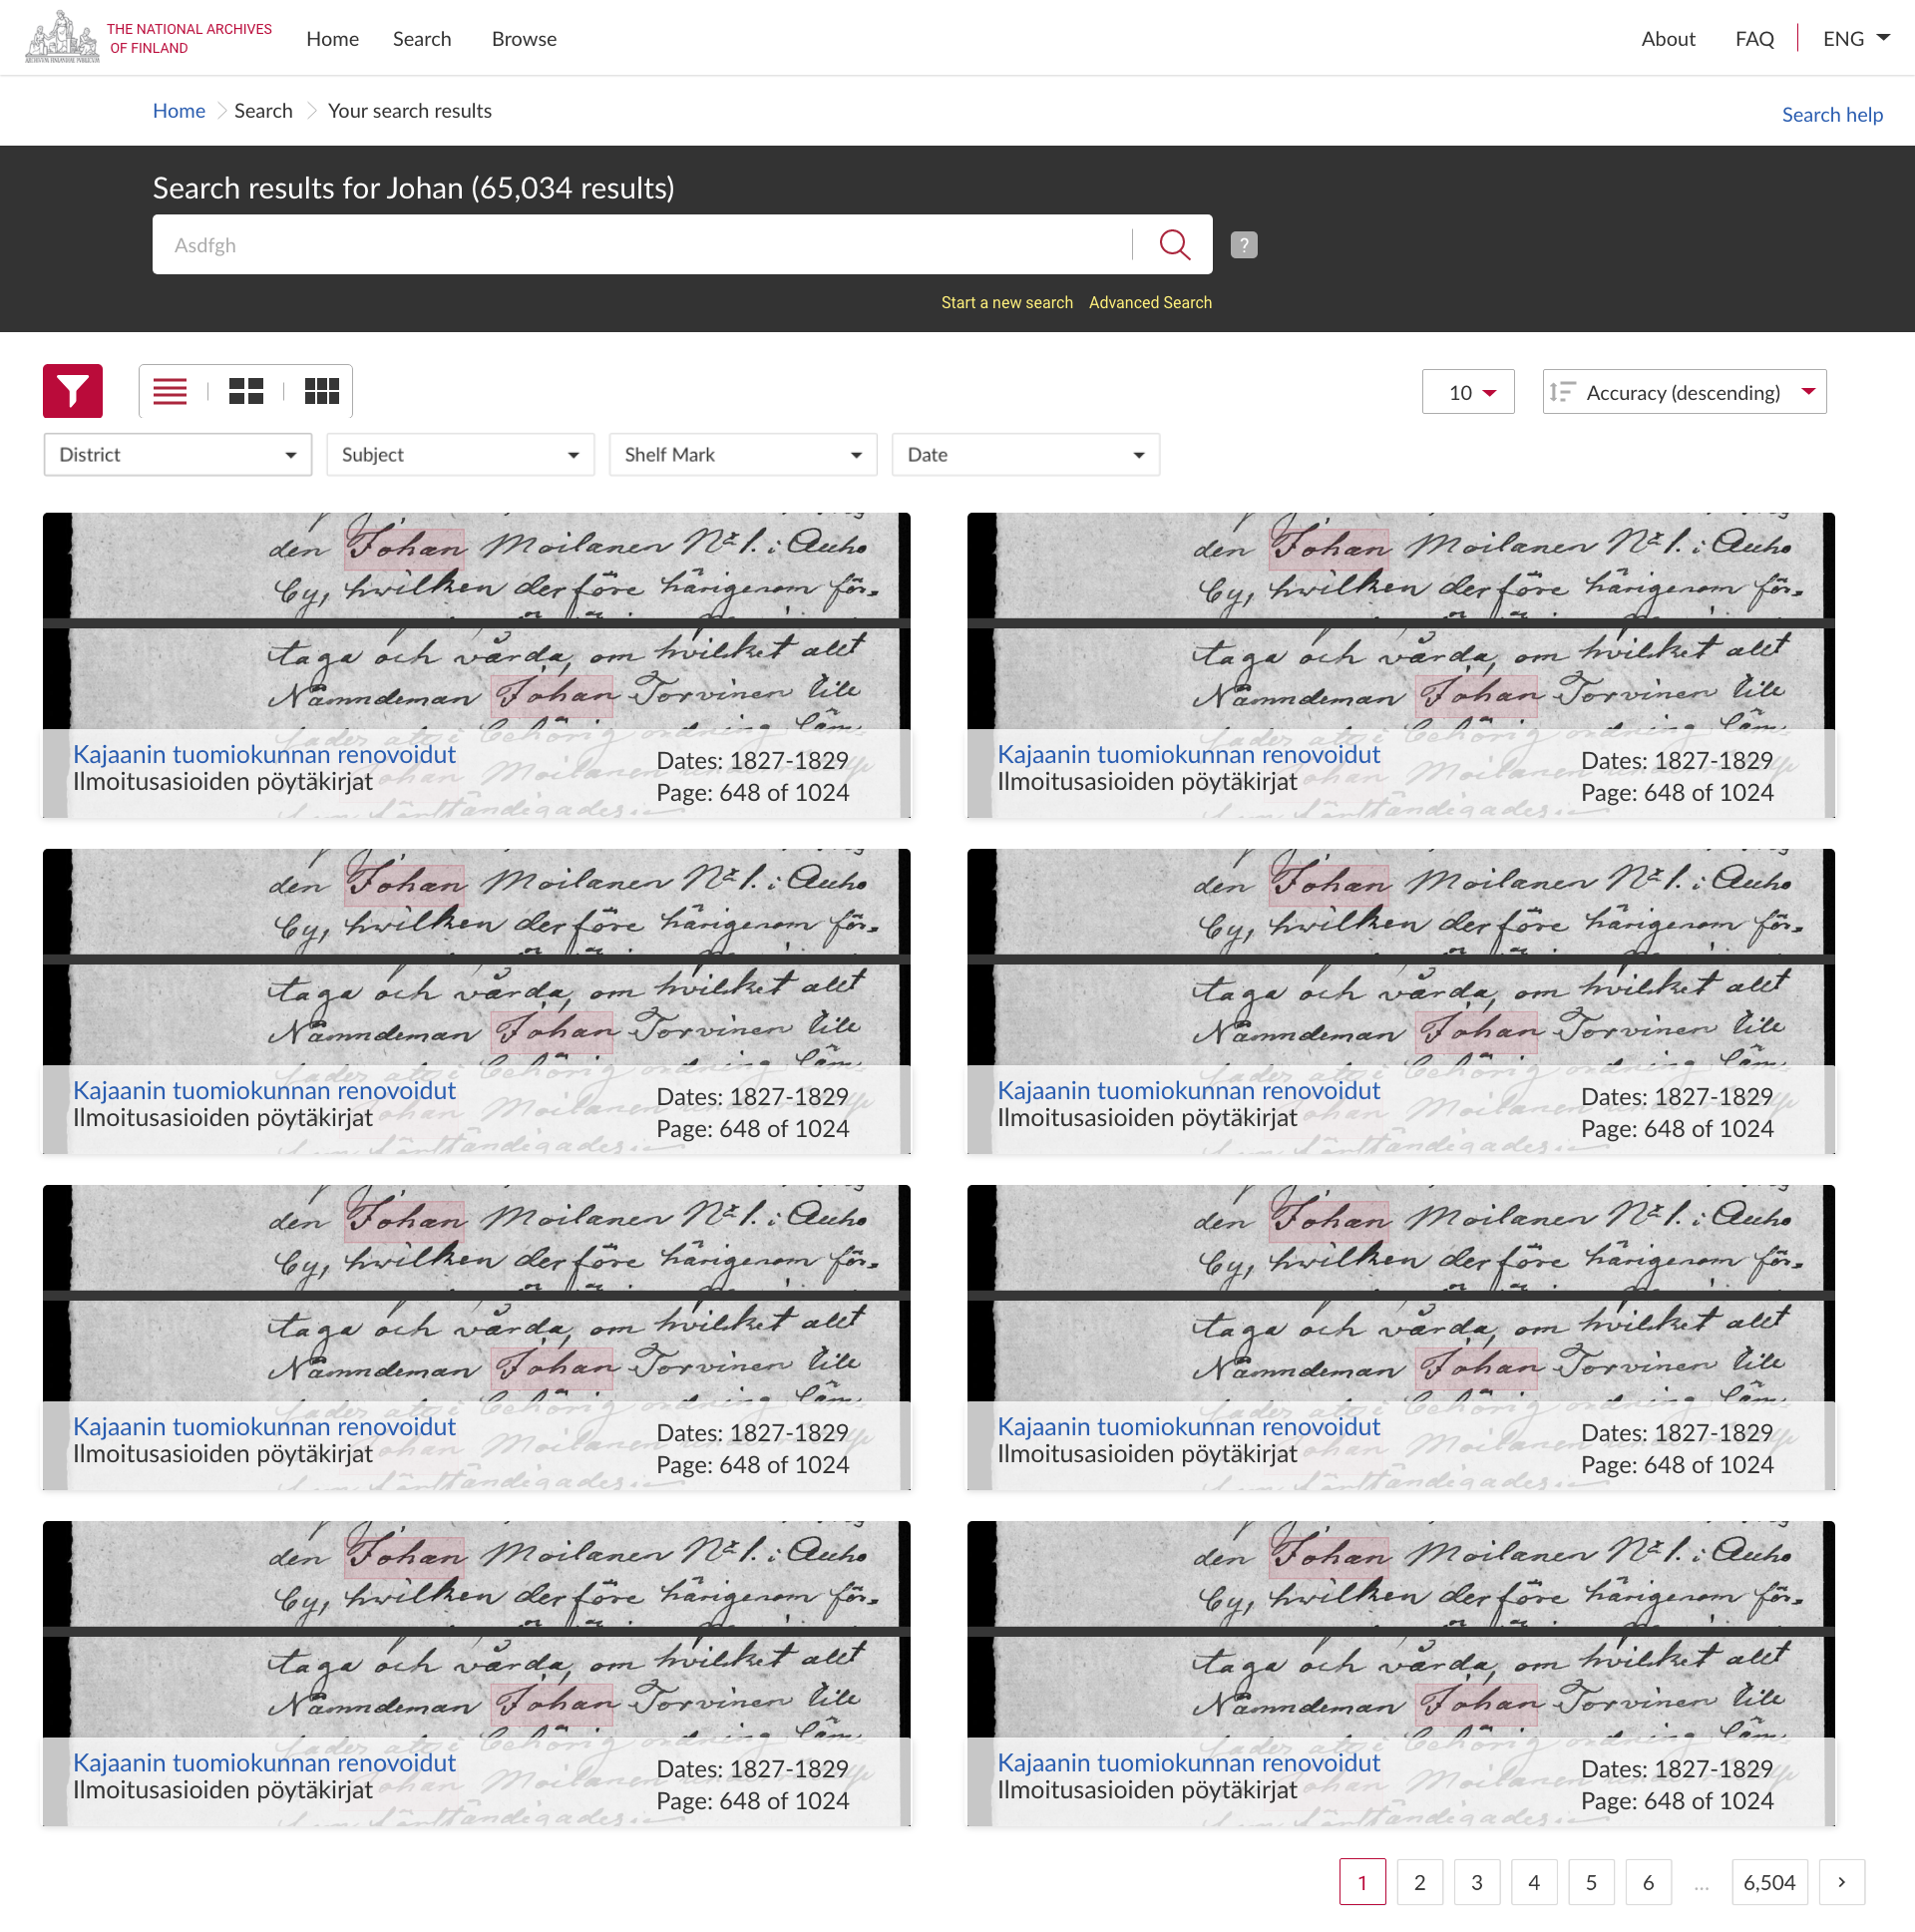 THE NATIONAL ARCHIVES
OF FINLAND
Home Search Browse
About FAQ ENG
Home Search Your search results
Search help
Search results for Johan (65,034 results)
Asdfgh
?
Start a new search Advanced Search
10
Accuracy (descending)
District Subject Shelf Mark Date
den Johan Moilanen N:r 1. i Auho
By, hwilken derföre härigenom för-
taga och vårda, om hvilket allt
Nämndeman Johan Torvinen
Kajaanin tuomiokunnan renovoidut
Ilmoitusasioiden pöytäkirjat
Dates: 1827-1829
Page: 648 of 1024
den Johan Moilanen N:r 1. i Auho
By, hwilken derföre härigenom för-
taga och vårda, om hvilket allt
Nämndeman Johan Torvinen
Kajaanin tuomiokunnan renovoidut
Ilmoitusasioiden pöytäkirjat
Dates: 1827-1829
Page: 648 of 1024
den Johan Moilanen N:r 1. i Auho
By, hwilken derföre härigenom för-
taga och vårda, om hvilket allt
Nämndeman Johan Torvinen
Kajaanin tuomiokunnan renovoidut
Ilmoitusasioiden pöytäkirjat
Dates: 1827-1829
Page: 648 of 1024
den Johan Moilanen N:r 1. i Auho
By, hwilken derföre härigenom för-
taga och vårda, om hvilket allt
Nämndeman Johan Torvinen
Kajaanin tuomiokunnan renovoidut
Ilmoitusasioiden pöytäkirjat
Dates: 1827-1829
Page: 648 of 1024
den Johan Moilanen N:r 1. i Auho
By, hwilken derföre härigenom för-
taga och vårda, om hvilket allt
Nämndeman Johan Torvinen
Kajaanin tuomiokunnan renovoidut
Ilmoitusasioiden pöytäkirjat
Dates: 1827-1829
Page: 648 of 1024
den Johan Moilanen N:r 1. i Auho
By, hwilken derföre härigenom för-
taga och vårda, om hvilket allt
Nämndeman Johan Torvinen
Kajaanin tuomiokunnan renovoidut
Ilmoitusasioiden pöytäkirjat
Dates: 1827-1829
Page: 648 of 1024
den Johan Moilanen N:r 1. i Auho
By, hwilken derföre härigenom för-
taga och vårda, om hvilket allt
Nämndeman Johan Torvinen
Kajaanin tuomiokunnan renovoidut
Ilmoitusasioiden pöytäkirjat
Dates: 1827-1829
Page: 648 of 1024
den Johan Moilanen N:r 1. i Auho
By, hwilken derföre härigenom för-
taga och vårda, om hvilket allt
Nämndeman Johan Torvinen
Kajaanin tuomiokunnan renovoidut
Ilmoitusasioiden pöytäkirjat
Dates: 1827-1829
Page: 648 of 1024
1 2 3 4 5 6 ... 6,504 ›